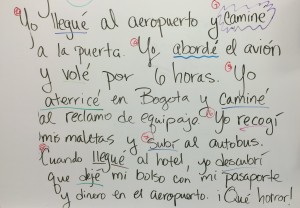 Yo llegue al aeropuerto y caminé
a la puerta. Yo abordé el avión
y volé por 6 horas. Yo
aterricé en Bogota y Caminé
al reclamo de equipajo. Yo recogí
mis maletas y subí al autobus.
Cuando llegué al hotel, yo descubrí
que dejé mi bolso con mi pasaporte
y dinero en el aeropuerto. ¡Qué horror!